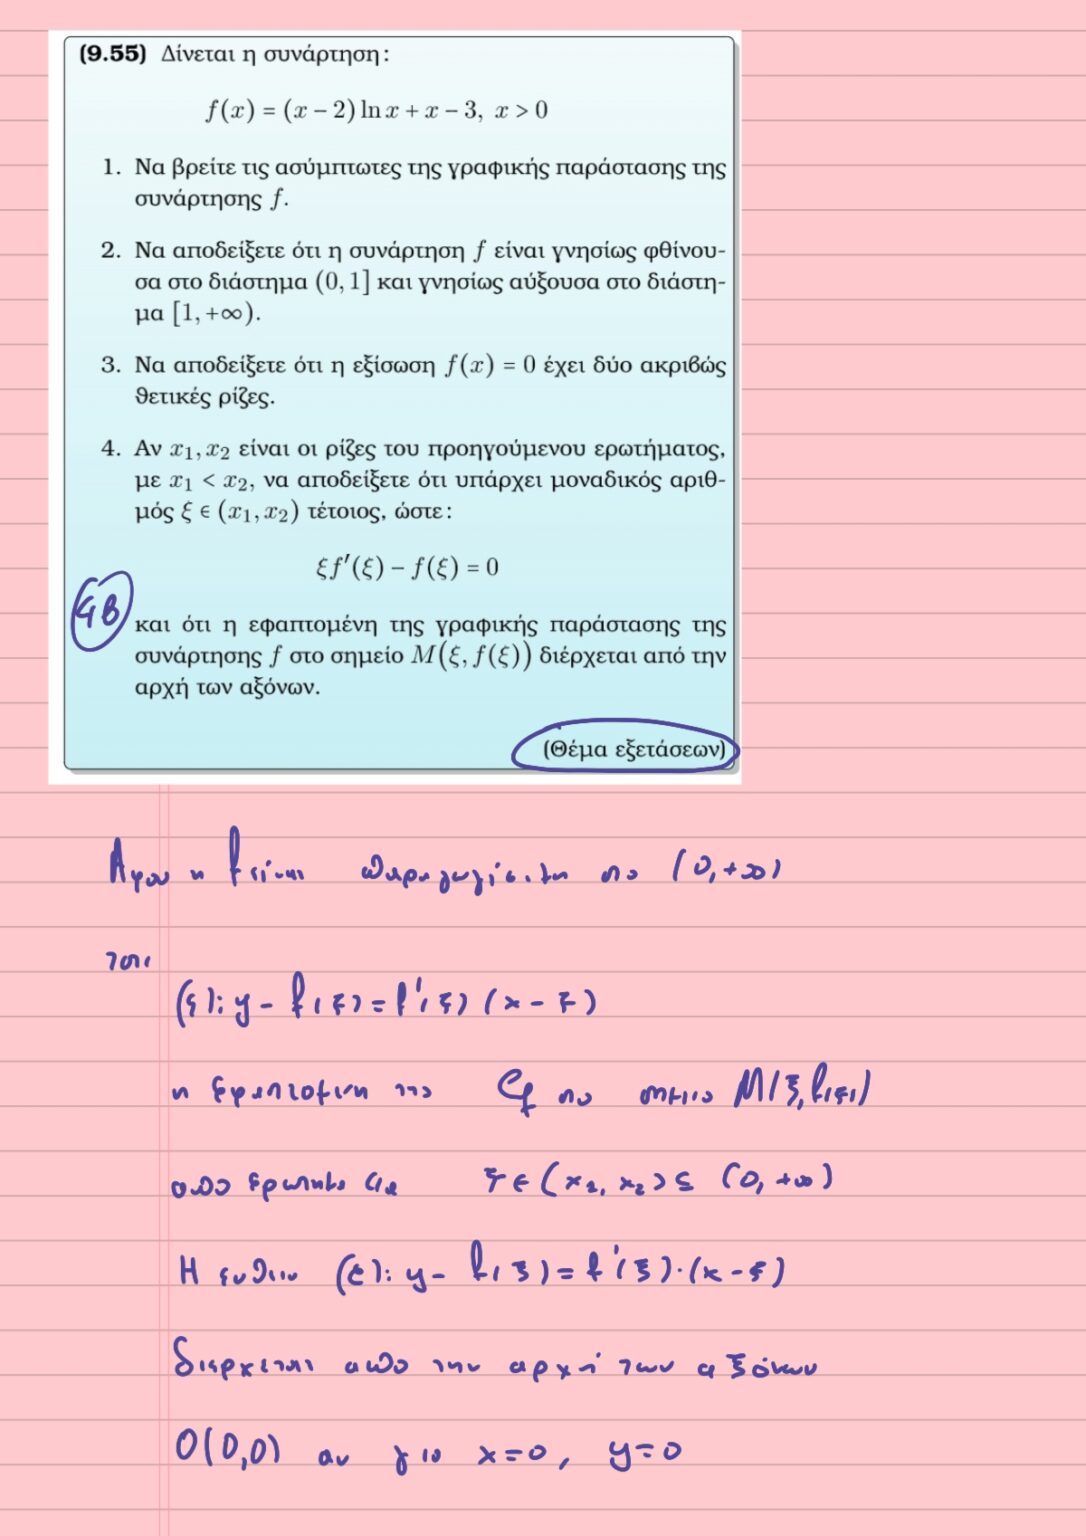 (9.55) Δίνεται η συνάρτηση:
f(x) = (x − 2) ln x + x − 3, x > 0
1. Να βρείτε τις ασύμπτωτες της γραφικής παράστασης της
συνάρτησης f.
2. Να αποδείξετε ότι η συνάρτηση f είναι γνησίως φθίνου-
σα στο διάστημα (0, 1] και γνησίως αύξουσα στο διάστη-
μα [1, +∞).
3. Να αποδείξετε ότι η εξίσωση f(x) = 0 έχει δύο ακριβώς
θετικές ρίζες.
4. Αν x₁, x₂ είναι οι ρίζες του προηγούμενου ερωτήματος,
με x₁ < x₂, να αποδείξετε ότι υπάρχει μοναδικός αριθ-
μός ξ ∈ (x₁, x₂) τέτοιος, ώστε:
ξf′(ξ) − f(ξ) = 0
4β
και ότι η εφαπτομένη της γραφικής παράστασης της
συνάρτησης f στο σημείο M(ξ, f(ξ)) διέρχεται από την
αρχή των αξόνων.
(Θέμα εξετάσεων)
Αφου η f είναι παραγωγίσιμη στο (0, +∞)
τότε
(ε): y − f(ξ) = f′(ξ) (x − ξ)
η εφαπτομένη της Cf στο σημείο M(ξ, f(ξ))
από ερώτημα 4α ξ ∈ (x₁, x₂) ⊆ (0, +∞)
Η ευθεία (ε): y − f(ξ) = f′(ξ)·(x − ξ)
διέρχεται από την αρχή των αξόνων
O(0,0) αν για x=0, y=0